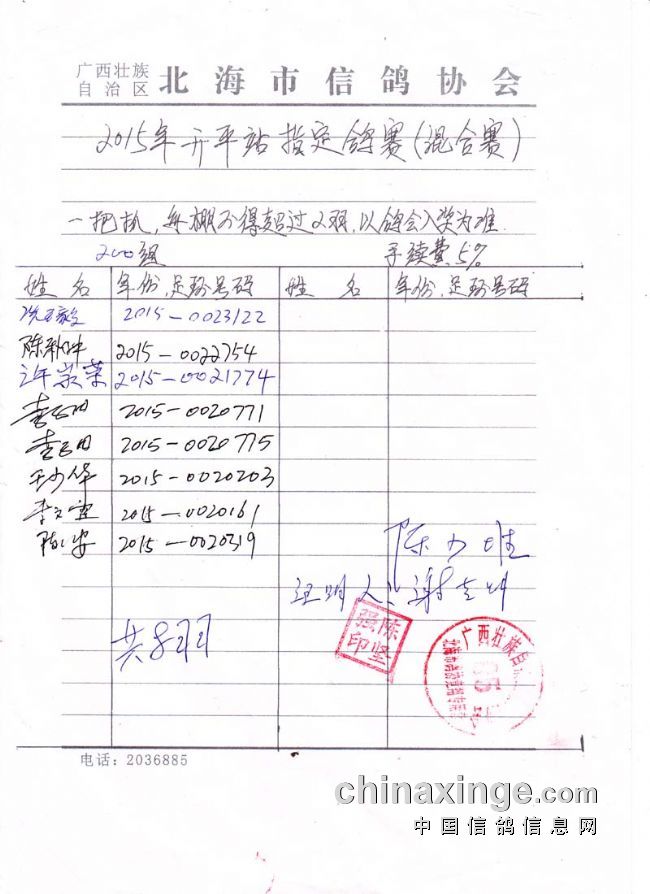 广西壮族
自治区 北海市信鸽协会
2015年开平站指定鸽赛(混合赛)
一把抓,每棚不得超过2羽,以鸽会入奖为准.
200组 手续费5%
姓名 年份.足环号码 姓名 年份.足环号码
2015-0023122
2015-0022754
许崇荣 2015-0021774
2015-0020771
2015-0020775
2015-0020203
2015-0020161
2015-0020319
证明人:
共8羽
陈坚强印
广西壮族自
电话:2036885
chinaxinge.com
中国信鸽信息网